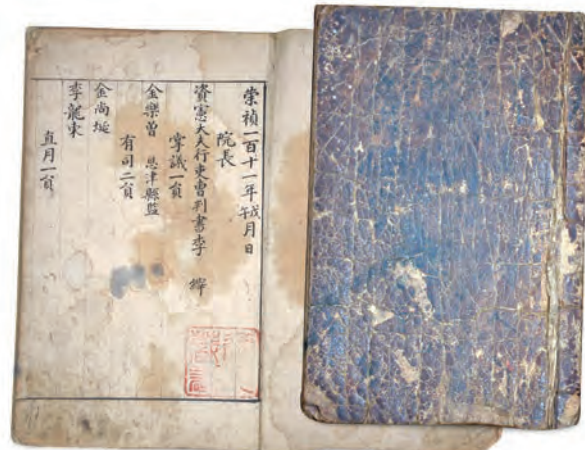 崇禎一百十一年戊午月日
院長
資憲大夫行吏曹判書李 縡
掌議一貟
金樂曾 恩津縣監
有司二貟
金尚埏
李龍宋
直月一貟